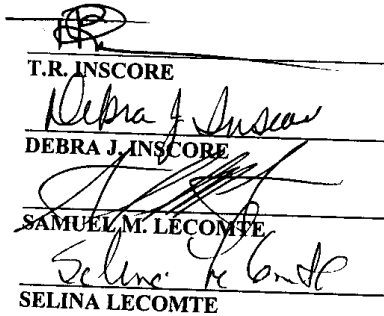 T.R. INSCORE
Debra J. Inscore
DEBRA J. INSCORE
SAMUEL M. LECOMTE
Selina Le Comte
SELINA LECOMTE